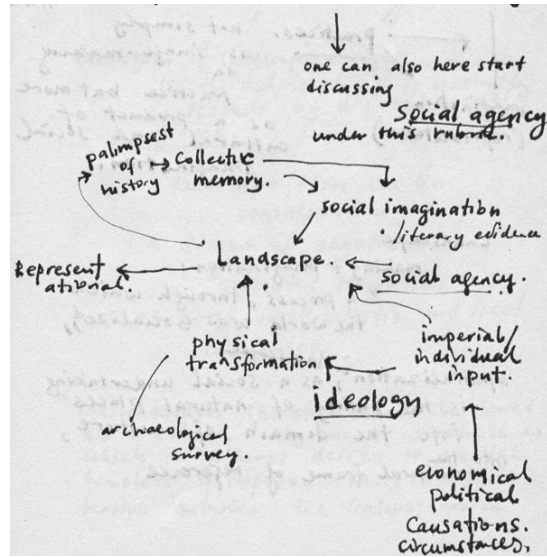 one can also here start
discussing
Social agency
under this rubric.
palimpsest
of
history
Collective
memory.
social imagination
· literary evidence
Landscape.
Represent
ational.
social agency.
physical
transformation
imperial/
individual
input.
ideology
archaeological
survey.
economical
political
Causations.
circumstances.